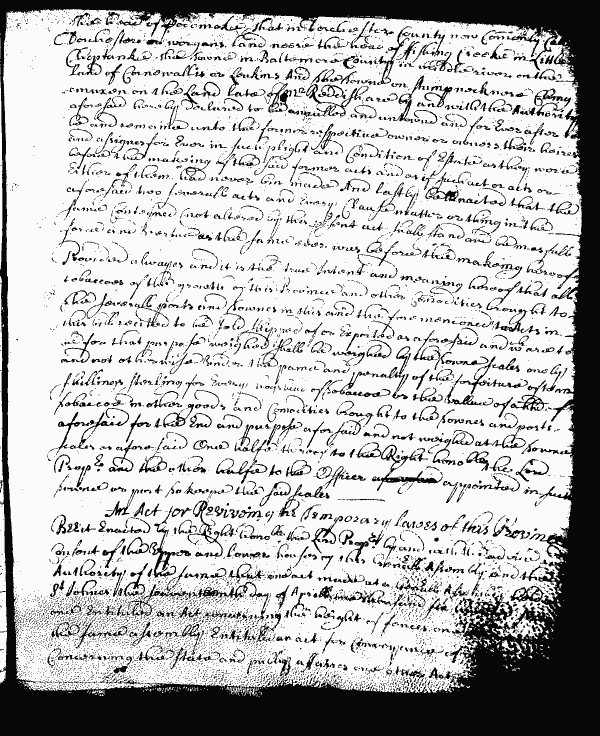 the of that in Dorchester County now
Dorchester on land neere the head of fishing Creeke in Little
Choptanke the Towne in Baltemore County in river on the
land of Cornewallis or and the Towne on
on the Land late of Reddish are by and with the Authority
aforesaid hereby declared to be annulled and and for Ever after to
be and remaine unto the former respective owner or owners their heires
and assignes for Ever in such plight and Condition of Estate as they were
before the making of the said former acts and as if such act or acts or
Either of them had never bin made And lastly be it Enacted that the
aforesaid two severall acts and Every Clause matter or thing in the
same Conteyned (not altered by this present act shall stand and be in as full
force and vertue as the same ever was before the making hereof
Provided alwayes and it is the true Intent and meaning hereof that all
tobaccoes of the growth of this Province and other Comodities brought to
the severall ports and Townes in this and the forementioned acts in
this bill recited to be sold shipped of or Exported as aforesaid and are to
for that purpose weighed shall be weighed by the Towne scales only
and not otherwise under the paine and penalty of the forfeiture of tenn
shillings sterling for Every of tobaccoe or the vallue of a hhd of
tobaccoe in other goods and Comodities brought to the Townes and ports
aforesaid for the End and purpose aforesaid and not weighed at the Towne
scales as aforesaid One halfe thereof to the Right honoble the Lord
Propry and the other halfe to the Officer appointed in such
towne or port to keepe the said scales
An Act for Reviving the Temporary lawes of this Province
Bee it Enacted by the Right honoble the Lord Propry by and with the advice and
assent of the upper and lower houses of this Generall Assembly and the
Authority of the same that one act made at a Generall Assembly held
St Johnes the seventeenth day of Aprill one thousand six
one Entituled an Act concerning the height of fences one
the same assembly Entituled an act for Conveyance of
Concerning the State and publiq affaires one other Act